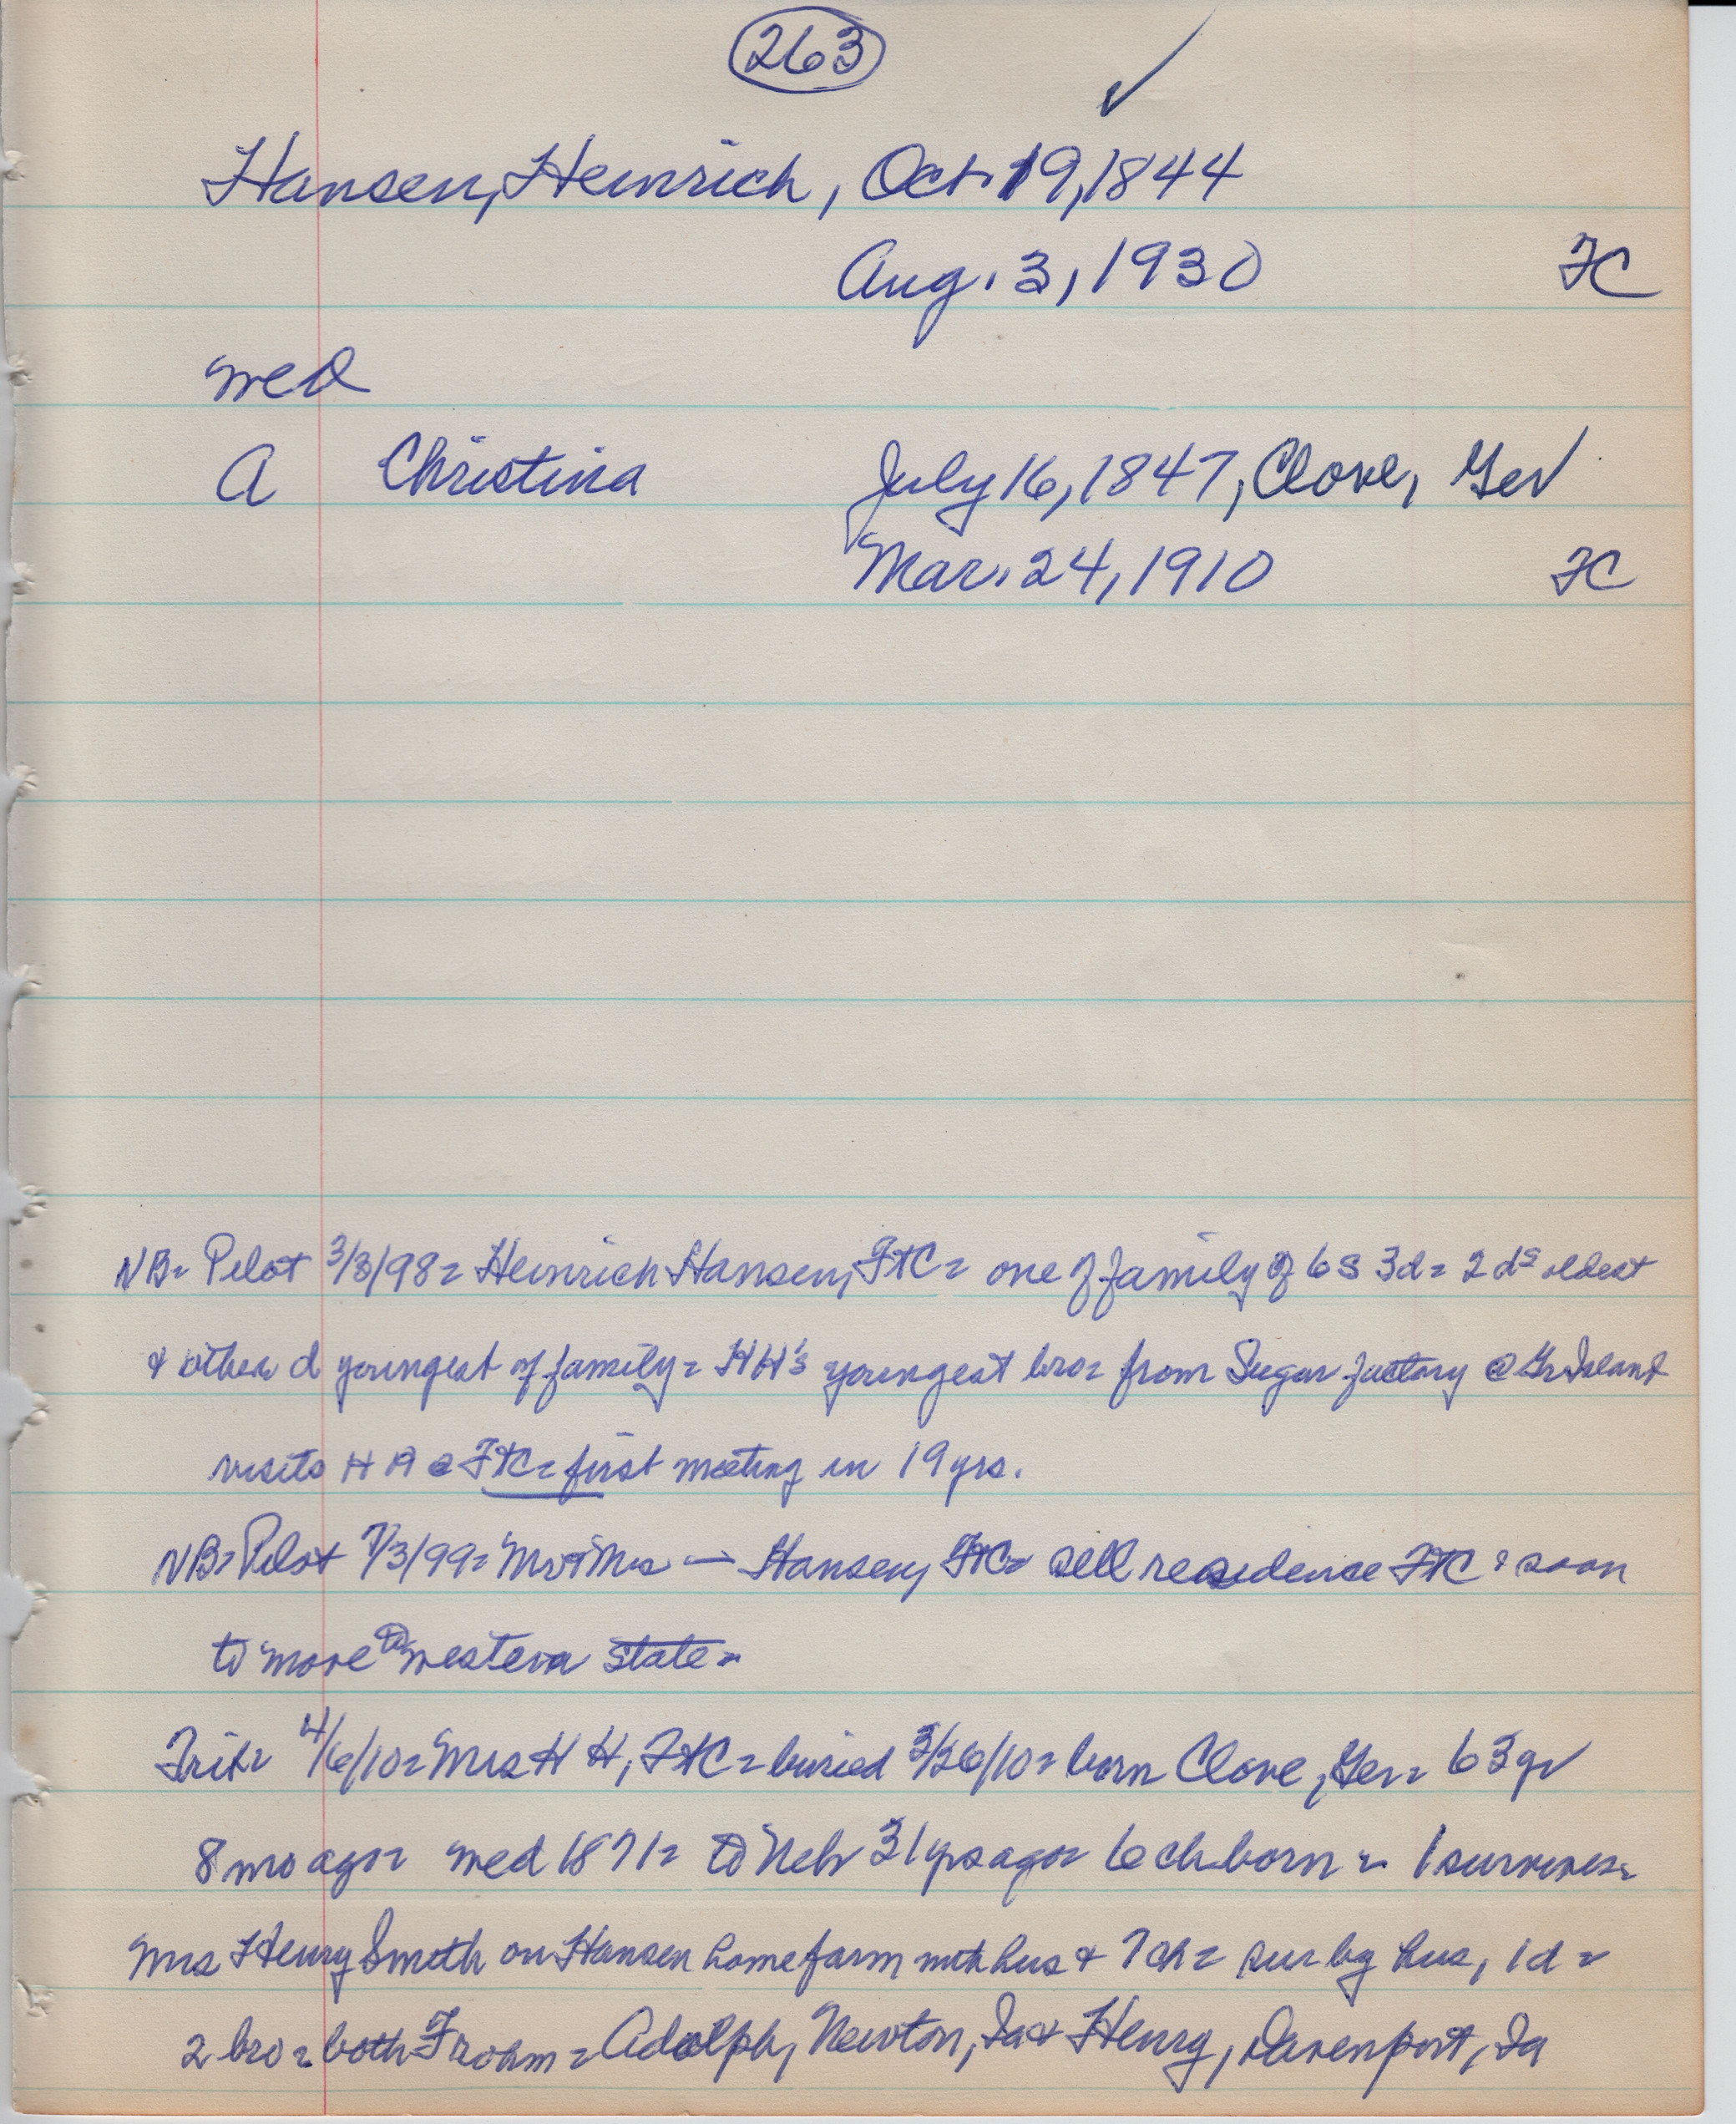 263 ✓
Hansen, Heinrich, Oct. 19, 1844
Aug. 3, 1930 FC
wed
A Christina July 16, 1847, Clove, Ger
Mar. 24, 1910 FC
NB= Pilot 3/3/98= Heinrich Hansen, FtC= one of family of 6s 3d= 2 ds oldest
& other d youngest of family= HH's youngest bro= from Sugar factory @ Gr Island
visits HH @ FtC= first meeting in 19 yrs.
NB= Pilot 7/3/99= Mr & Mrs — Hansen, FtC= sell residence FtC & soon
to move to western state=
Trib= 4/6/10= Mrs H H, FtC= buried 3/26/10= born Clove, Ger= 63 yr
8 mo ago= wed 1871= to Neb 31 yrs ago= 6 ch born= 1 survives=
Mrs Henry Smith on Hansen home farm with hus & 7 ch= sur by hus, 1 d=
2 bro= both Frohm= Adolph, Newton, Ia & Henry, Davenport, Ia